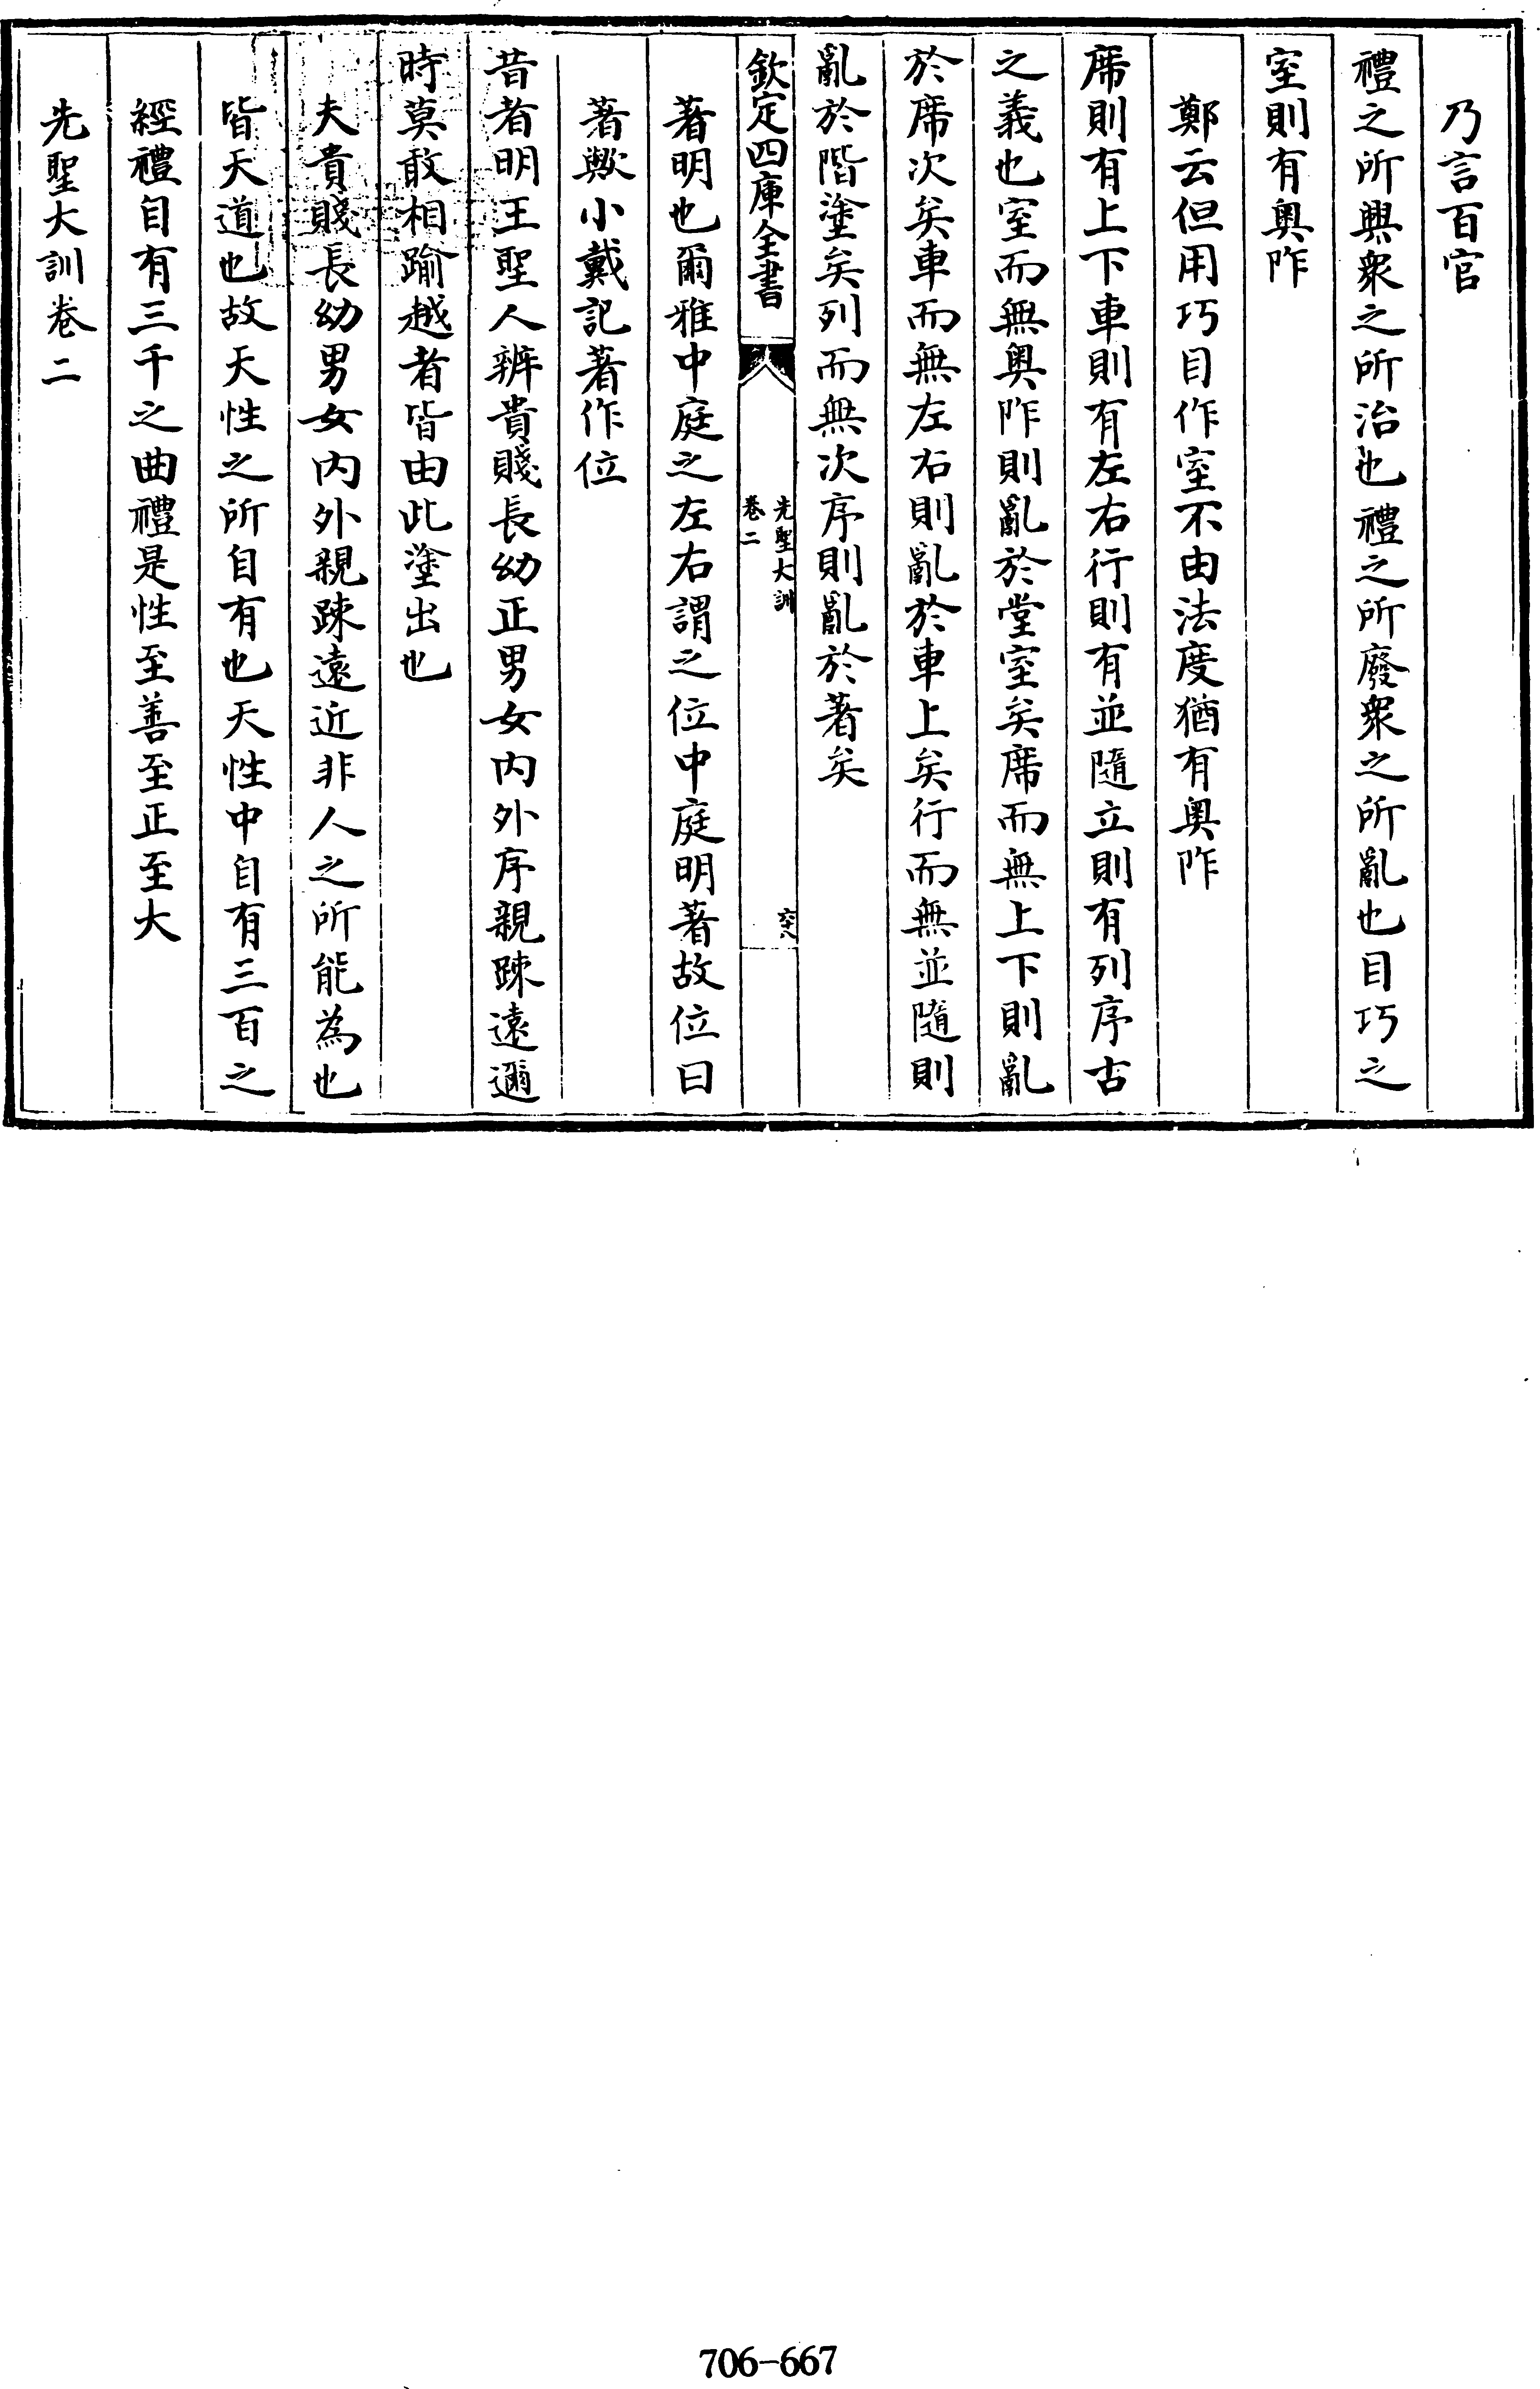 乃言百官
禮之所興衆之所治也禮之所廢衆之所亂也目巧之
室則有奥阼
鄭云但用巧目作室不由法度猶有奥阼
席則有上下車則有左右行則有並隨立則有列序古
之義也室而無奥阼則亂於堂室矣席而無上下則亂
於席次矣車而無左右則亂於車上矣行而無並隨則
亂於階塗矣列而無次序則亂於著矣
欽定四庫全書
先聖大訓
卷二
著明也爾雅中庭之左右謂之位中庭明著故位曰
著歟小戴記著作位
昔者明王聖人辨貴賤長幼正男女内外序親踈遠邇
時莫敢相踰越者皆由此塗出也
夫貴賤長幼男女内外親踈遠近非人之所能為也
皆天道也故天性之所自有也天性中自有三百之
經禮自有三千之曲禮是性至善至正至大
先聖大訓卷二
706-667